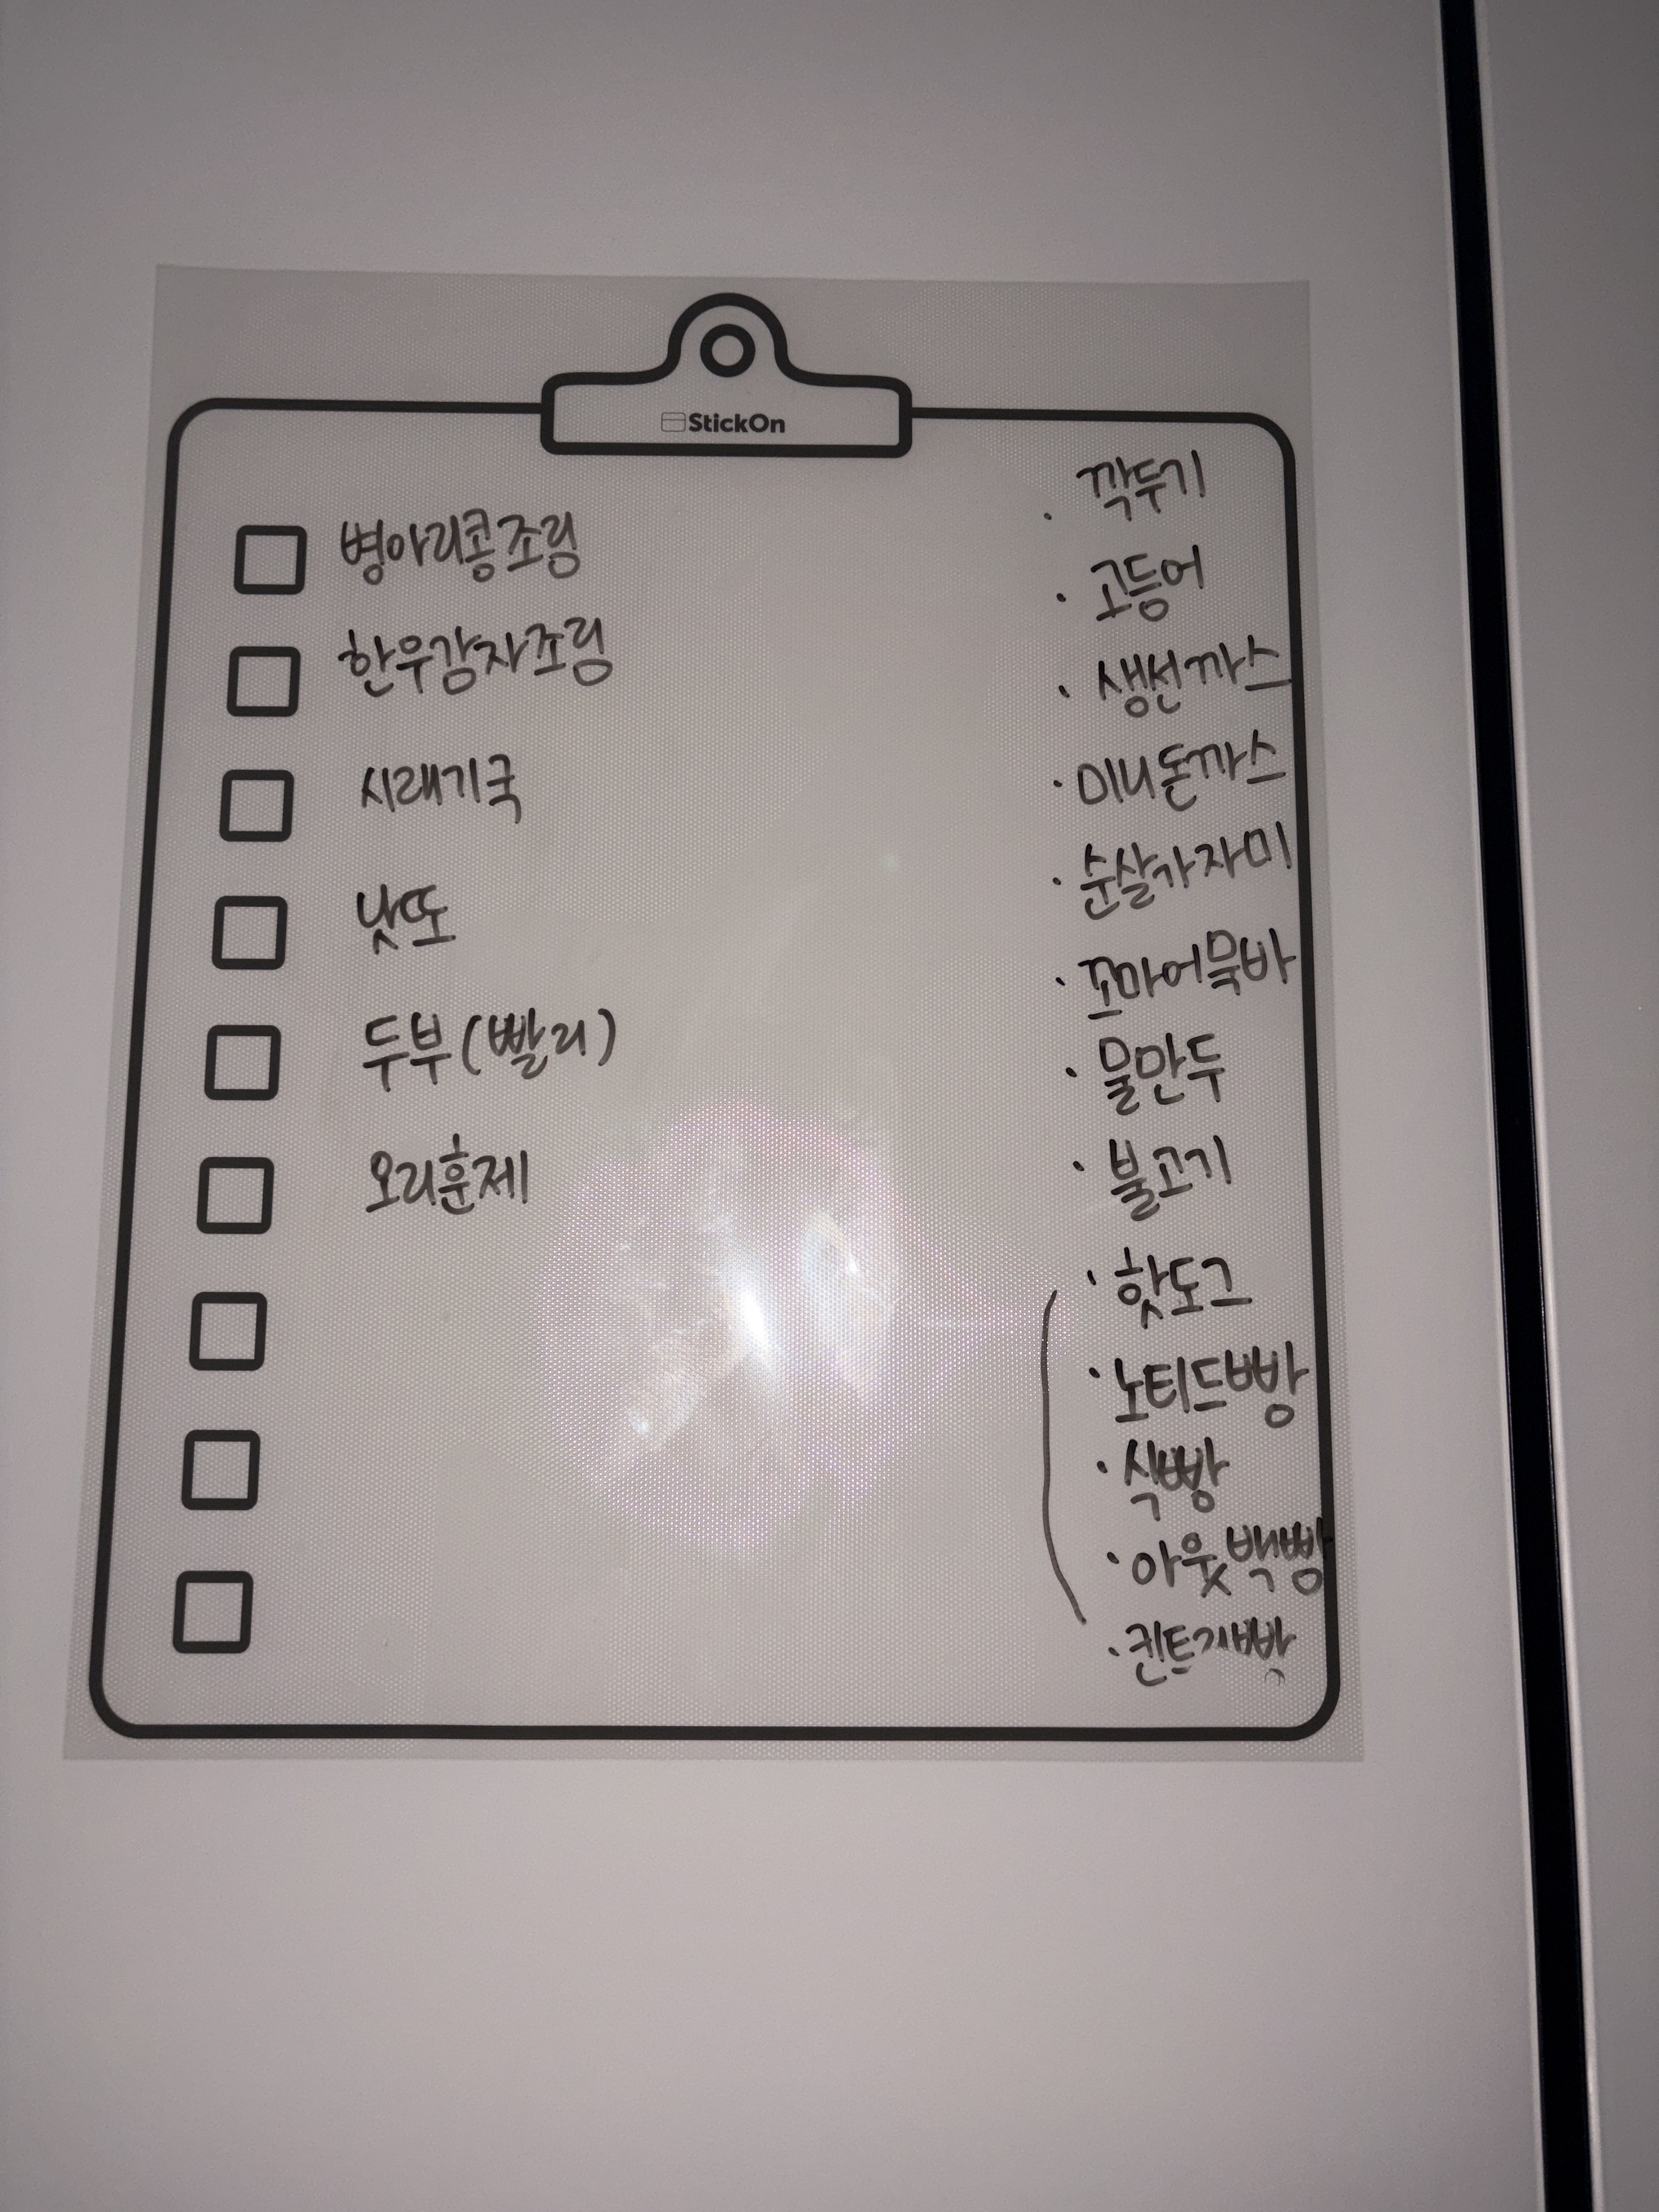 StickOn
병아리콩조림
한우감자조림
시래기국
낫또
두부(빨리)
오리훈제
· 깍두기
· 고등어
· 생선까스
· 미니돈까스
· 순살가자미
· 꼬마어묵바
· 물만두
· 불고기
· 핫도그
· 노티드빵
· 식빵
· 아웃백빵